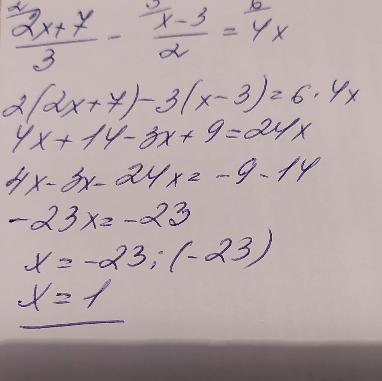 2 3 6
(2x+7)/3 - (x-3)/2 = 4x
2(2x+7)-3(x-3)=6·4x
4x+14-3x+9=24x
4x-3x-24x=-9-14
-23x=-23
x=-23:(-23)
x=1